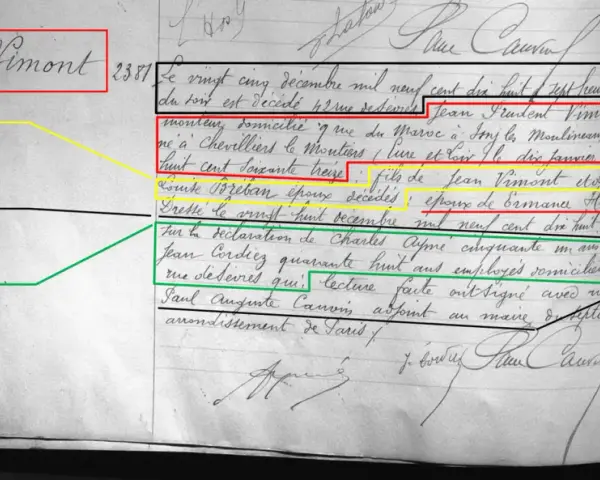 Paul Cauvin
Vimont
2381
Le vingt cinq décembre mil neuf cent dix huit, sept heures
du soir est décédé 42 rue de Sèvres Jean Prudent Vim
monteur, domicilié 9 rue du Maroc à Issy les Moulineaux
né à Chevilliers le Moutiers (Eure et Loir) le dix janvier
huit cent soixante treize ; fils de Jean Vimont et d
Louise Bréban époux décédés ; époux de Ermance H
Dressé le vingt huit décembre mil neuf cent dix huit
sur la déclaration de Charles Aymé cinquante un ans
Jean Cordiez quarante huit ans employés domicilié
rue de Sèvres qui, lecture faite ont signé avec n
Paul Auguste Cauvin adjoint au maire du sept
arrondissement de Paris /
Paul Cauvin